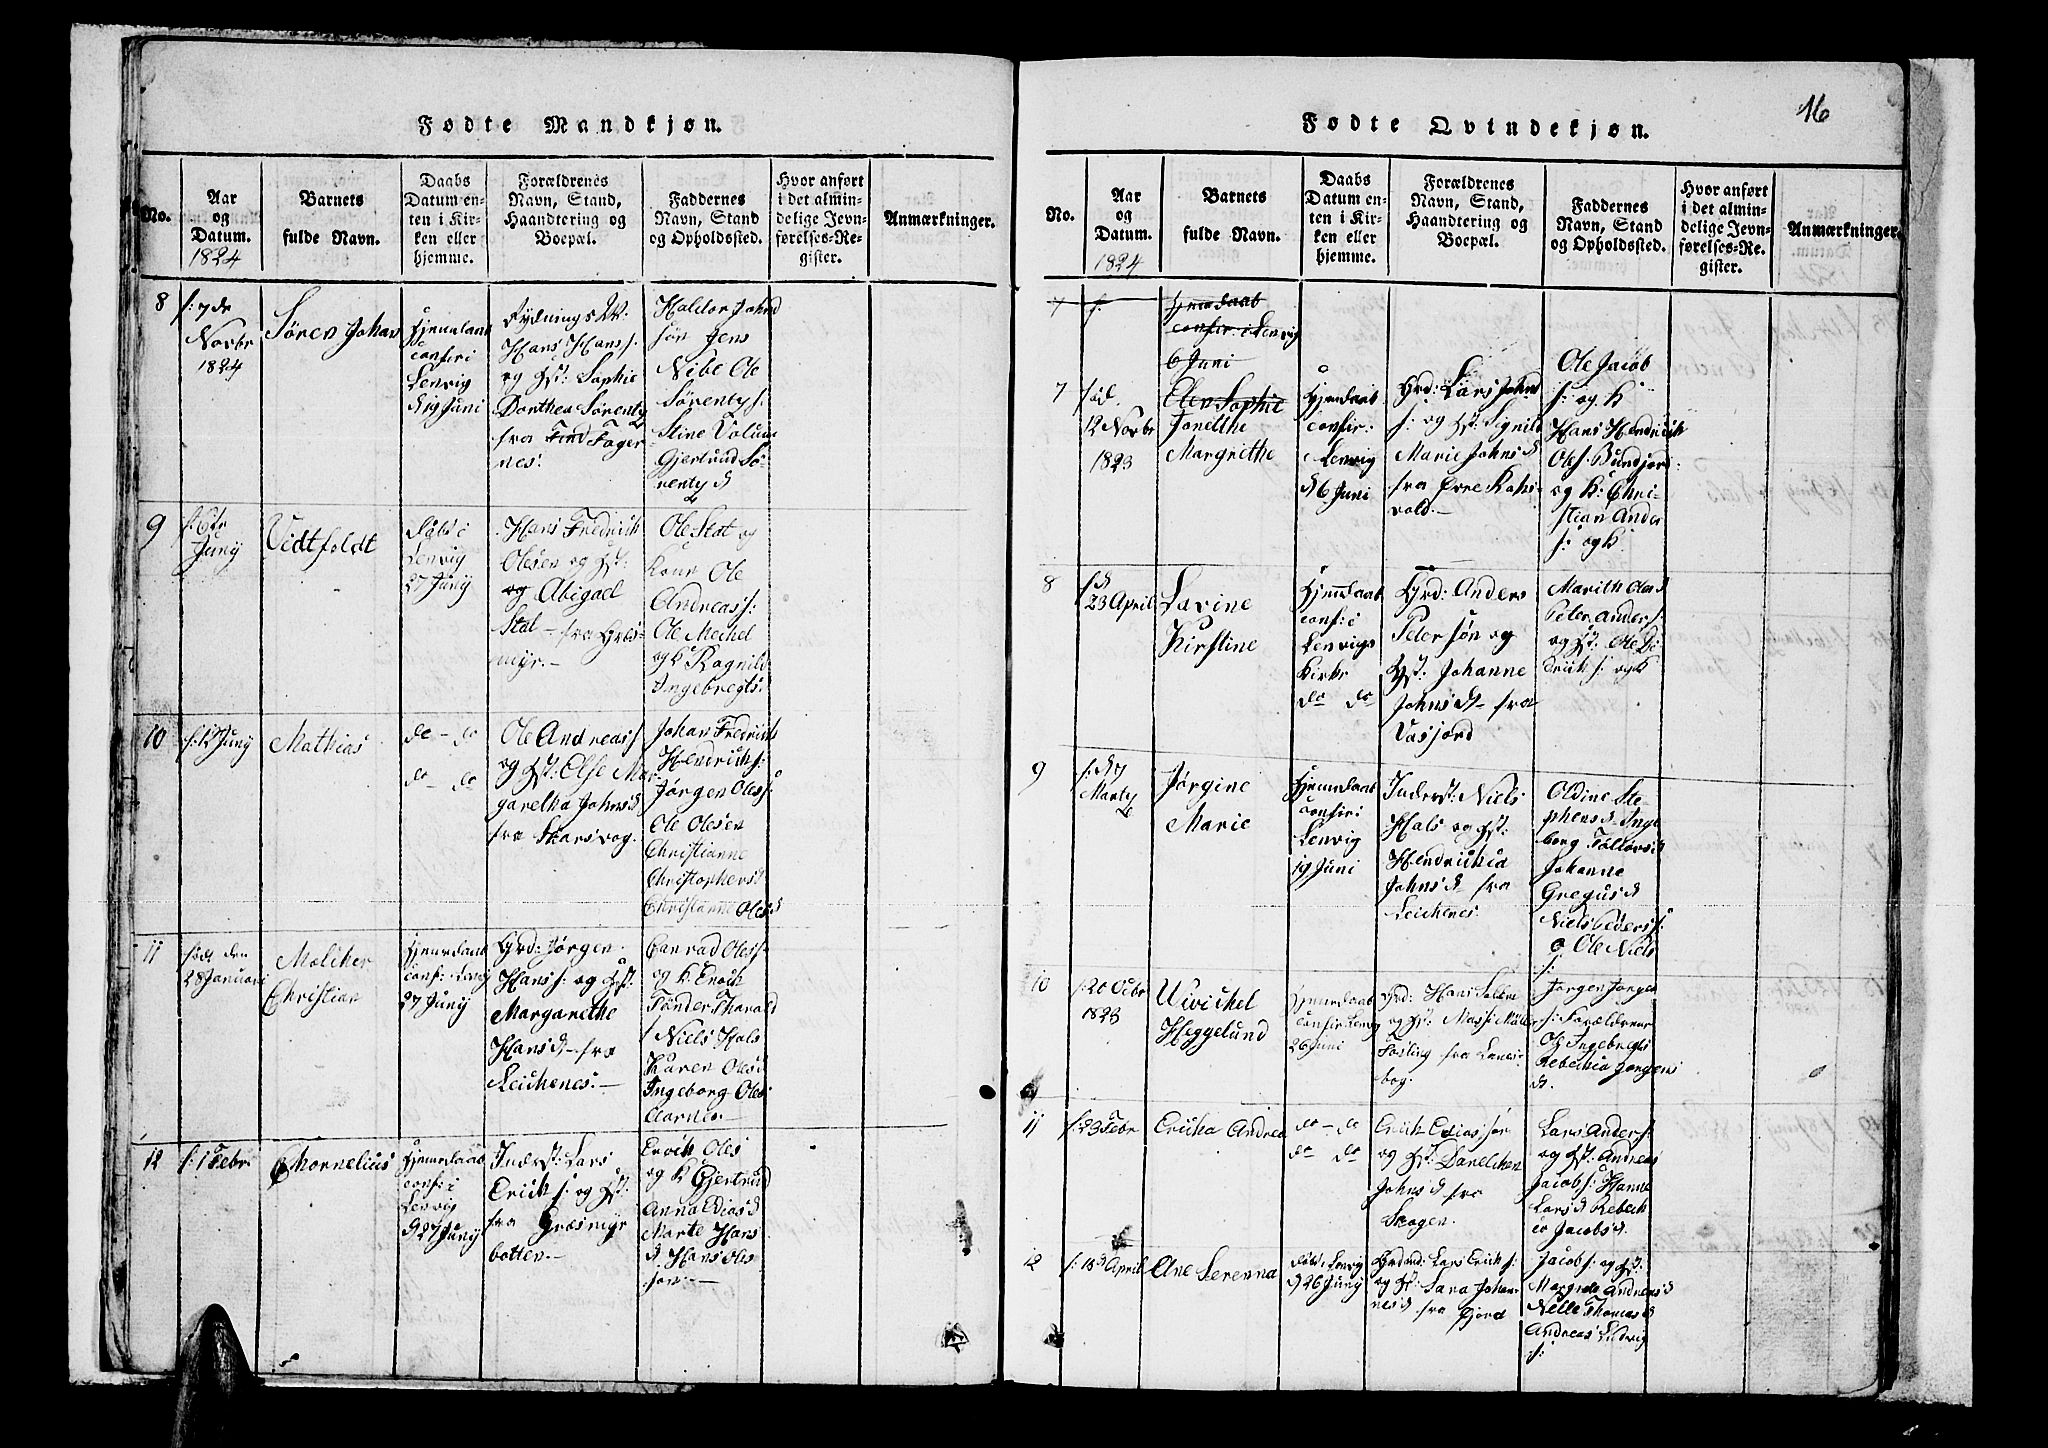 16
Fødte Mandkjøn.
No.
Aar
og
Datum.
1824
Barnets
fulde Navn.
Daabs
Datum en-
ten i Kir-
ken eller
hjemme.
Forældrenes
Navn, Stand,
Haandtering og
Boepæl.
Faddernes
Navn, Stand
og Opholdssted.
Hvor anført
i det almin-
delige Jevn-
førelses-Re-
gister.
Anmærkninger.
8
f: 7de
Novbr
1824
Søren Johan
Hjemdaab
confir i
Lenvig
d 19 Juni
Rydnings M:
Hans Hans s:
og Hst: Sophie
Dorthea Sørentz
fra Find Fager
nes:
Haldor Johnd
søn Jens
Nibe Ole
Sørentz s:
Stine
Gjertrud Sø-
rentz d
9
f: 6te
Juny
Vidtfeldt
Døbt i
Lenvig
27 Juny
Hans Fredrick
Olesen og Hst:
og Abigael
Stat – fra Græs-
myr. –
Ole Stat og
Kone Ole
Andreas s:
Ole Mechel
og K Ragnild
Ingebregts:
10
f: 12 Juny
Mathias
do – do
do – do
Ole Andreas s
og Hst: Else Mar-
garetha Johns d
fra Skarsvog.
Johan Fredrich
Hendrich s:
Jørgen Oles s:
Ole Olesen
Christianne
Christophers d
Christianne Oles d
11
fød den
28 Januari
Melcher
Christian
Hjemdaab
confir: Lenvig
27 Juny
Grd: Jørgen
Hans s: og Hst:
Margarethe
Hans d – fra
Leichenes: –
Conrad Oles s
og K Enoch
Tønder Tharald
s Niels Hals
Karen Oles d
Ingeborg Oles
12
f: 1 Febr:
Chornelius
Hjemdaab
conf: i
Lenvig
d 27 Juny
Inderst: Lars
Erick s: og Hst:
fra Græsmyr
botten. –
Enoch Oles
og K Gjertrud
Anna Edias d
Marte Hans
d Hans Oles
søn: –
Fødte Qvindekjøn.
No.
Aar
og
Datum.
1824
Barnets
fulde Navn.
Daabs
Datum en-
ten i Kir-
ken eller
hjemme.
Forældrenes
Navn, Stand,
Haandtering og
Boepæl.
Faddernes
Navn, Stand
og Opholdssted.
Hvor anført
i det almin-
delige Jevn-
førelses-Re-
gister.
Anmærkninger.
7
f:
Hjemdaab
confir: i Lenvig
6 Juni
7
fød
12 Novbr
1823
Elen Sophie
Jonetthe
Margrethe
Hjemdaab
confir:
Lenvig
d 6 Juni
Grd: Lars Johnd
s: og Hst: Signild
Marie Johns d
fra Øvre Kahs-
vold. –
Ole Jacob
s: og K
Hans Hendrick
Oles. Bundjord:
og K: Chri-
stian Ander
s: og K.
8
f: d
23 April
Lavine
Kirstine
Hjemdaab
conf: i
Lenvigs
Kirke
do do
Grd: Anders
Petersøn og
Hst: Johanne
Johns d – fra
Vasjord
Marith Oles d
Peter Anders s:
og Hst: Ole Di
drick s: og K
9
f: d 7
Martz
Jørgine
Marie
Hjemdaab
confir i
Lenvig
19 Juni
Inderst: Niels
Hals og Hst:
Hendricka
Johns d fra
Leichenes:
Oldine Ste-
phens d Inge
borg Tollevs d
Johanne
Gregus d
Niels Peders s:
o Ole Niels
s:
10
f: 20 Octbr
1823
Ulvichel
Heggelund
Hjemdaab
confir Lenvig
26 Juni
Grd: Hans
og Hst: Massi Møller
fra Lenes-
bog.
Jørgen Jørgen
s: Forældrene
Ole Ingebregts
Rebechia Jørgens
d.
11
f: 23 Febr
Ericka Andrea
do – do
do do
Erick Ediassøn
og Hst: Dorelthen
Johns d fra
Skogen.
Lars Anders s:
og Hst: Andreas
Jacob s: Hanne
Lars d Rebech
ia Jacobs d.
12
f: 18 d April
Ane Serenna
Døbt i Lenvig
d 26 Juny
Grdmd: Lars Erick s:
og Hst: Sara Johan
nes d fra Fjord
Jacob s: og Hst:
Margrete Andreas d
Nelle Thomas d
Andreas Ludvig
s: